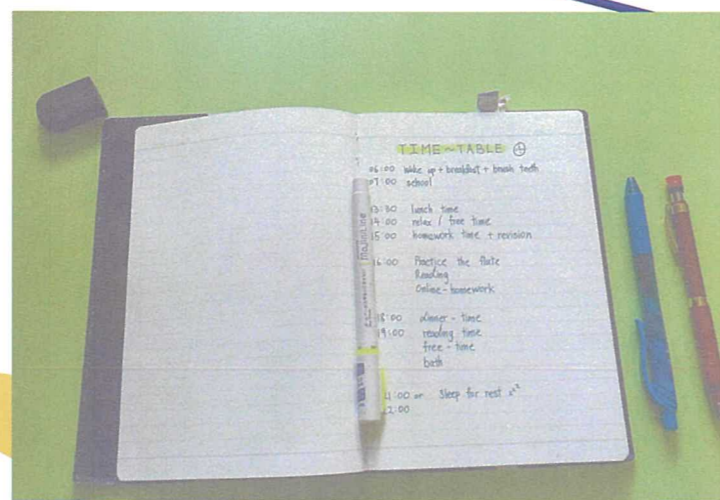 TIME~TABLE
06:00 wake up + breakfast + brush teeth
07:00 school
13:30 lunch time
14:00 relax / free time
15:00 homework time + revision
16:00 Practice the flute
Reading
Online-homework
18:00 dinner-time
19:00 reading time
free-time
bath
21:00 or Sleep for rest zzz
22:00